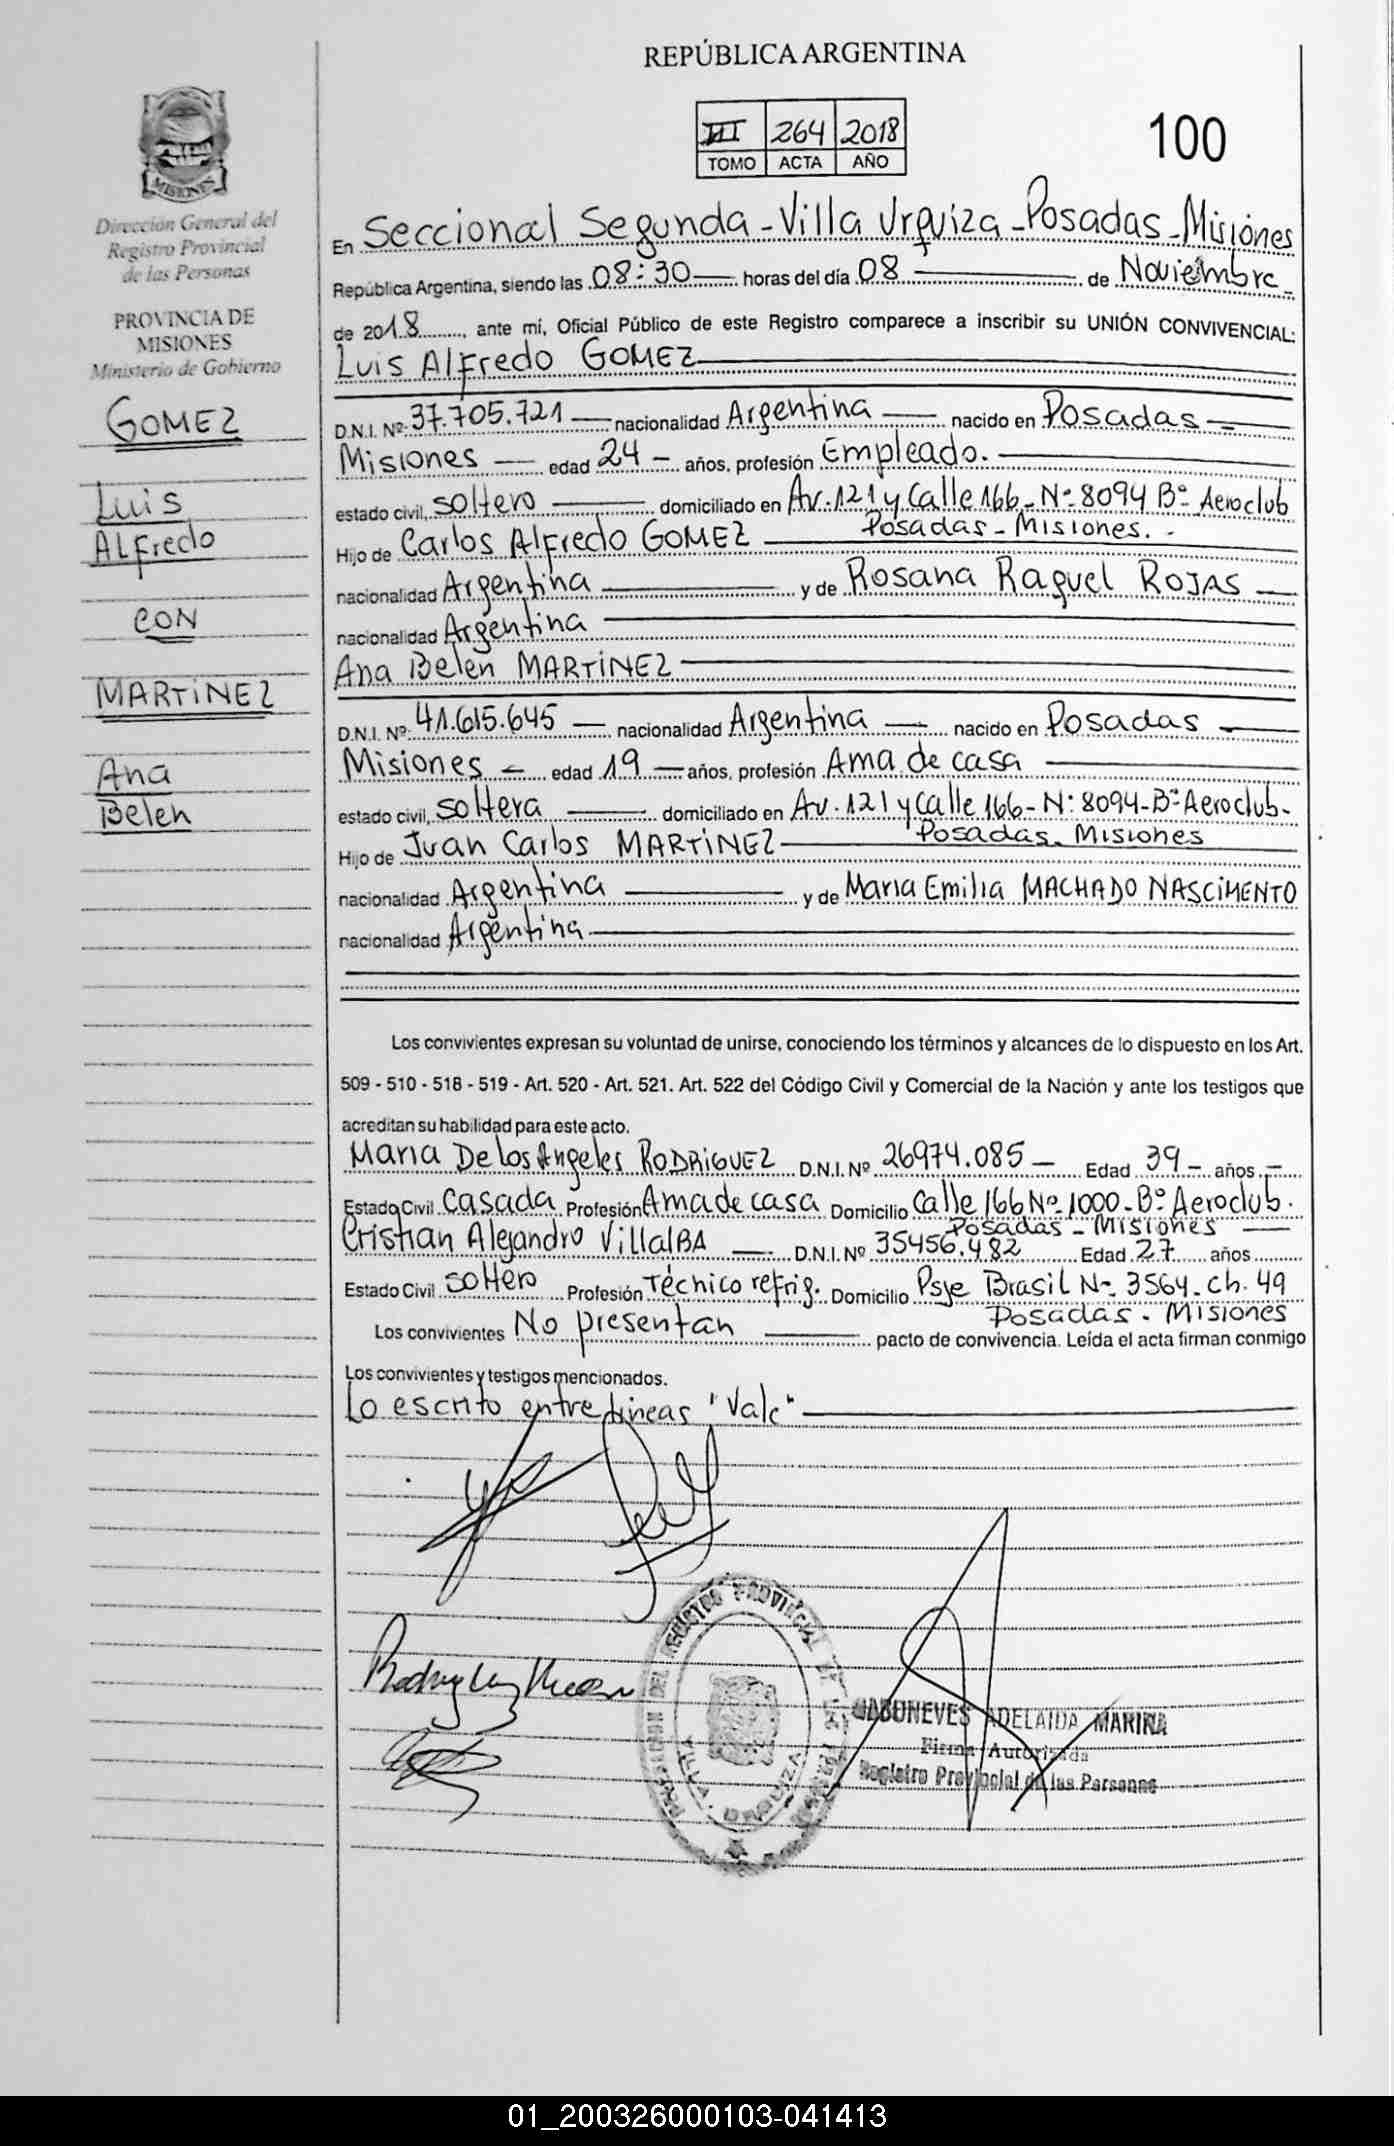 REPÚBLICA ARGENTINA
III 264 2018
TOMO ACTA AÑO
100
MISIONES
Dirección General del
Registro Provincial
de las Personas
PROVINCIA DE
MISIONES
Ministerio de Gobierno
GOMEZ
Luis
ALfredo
CON
MARTiNEZ
Ana
Belen
En Seccional Segunda - Villa Urquiza - Posadas - Misiones
República Argentina, siendo las 08:30 horas del día 08 de Noviembre
de 2018, ante mí, Oficial Público de este Registro comparece a inscribir su UNIÓN CONVIVENCIAL:
Luis Alfredo GOMEZ
D.N.I. Nº 37.705.721 nacionalidad Argentina nacido en Posadas
Misiones edad 24 años, profesión Empleado.
estado civil, soltero domiciliado en Av. 121 y Calle 166 - Nº 8094 Bº Aeroclub
Posadas - Misiones.
Hijo de Carlos Alfredo GOMEZ
nacionalidad Argentina y de Rosana Raquel ROJAS
nacionalidad Argentina
Ana Belen MARTiNEZ
D.N.I. Nº: 41.615.645 nacionalidad Argentina nacido en Posadas
Misiones edad 19 años, profesión Ama de casa
estado civil, soltera domiciliado en Av. 121 y Calle 166 - Nº 8094 - Bº Aeroclub -
Posadas. Misiones
Hijo de Juan Carlos MARTiNEZ
nacionalidad Argentina y de Maria Emilia MACHADO NASCiMENTO
nacionalidad Argentina
Los convivientes expresan su voluntad de unirse, conociendo los términos y alcances de lo dispuesto en los Art.
509 - 510 - 518 - 519 - Art. 520 - Art. 521. Art. 522 del Código Civil y Comercial de la Nación y ante los testigos que
acreditan su habilidad para este acto.
Maria De los Angeles RODRiGUEZ D.N.I. Nº 26974.085 Edad 39 años
Estado Civil Casada Profesión Ama de casa Domicilio Calle 166 Nº 1000 - Bº Aeroclub.
Posadas - Misiones
Cristian Alejandro VillalBA D.N.I. Nº 35456.482 Edad 27 años
Estado Civil soltero Profesión Técnico refrig. Domicilio Psje Brasil Nº 3564. ch. 49
Posadas. Misiones
Los convivientes No presentan pacto de convivencia. Leída el acta firman conmigo
Los convivientes y testigos mencionados.
Lo escrito entre lineas "Vale"
VILLA URQUIZA
ADELAIDA MARINA
Firma Autorizada
Registro Provincial de las Personas
01_200326000103-041413